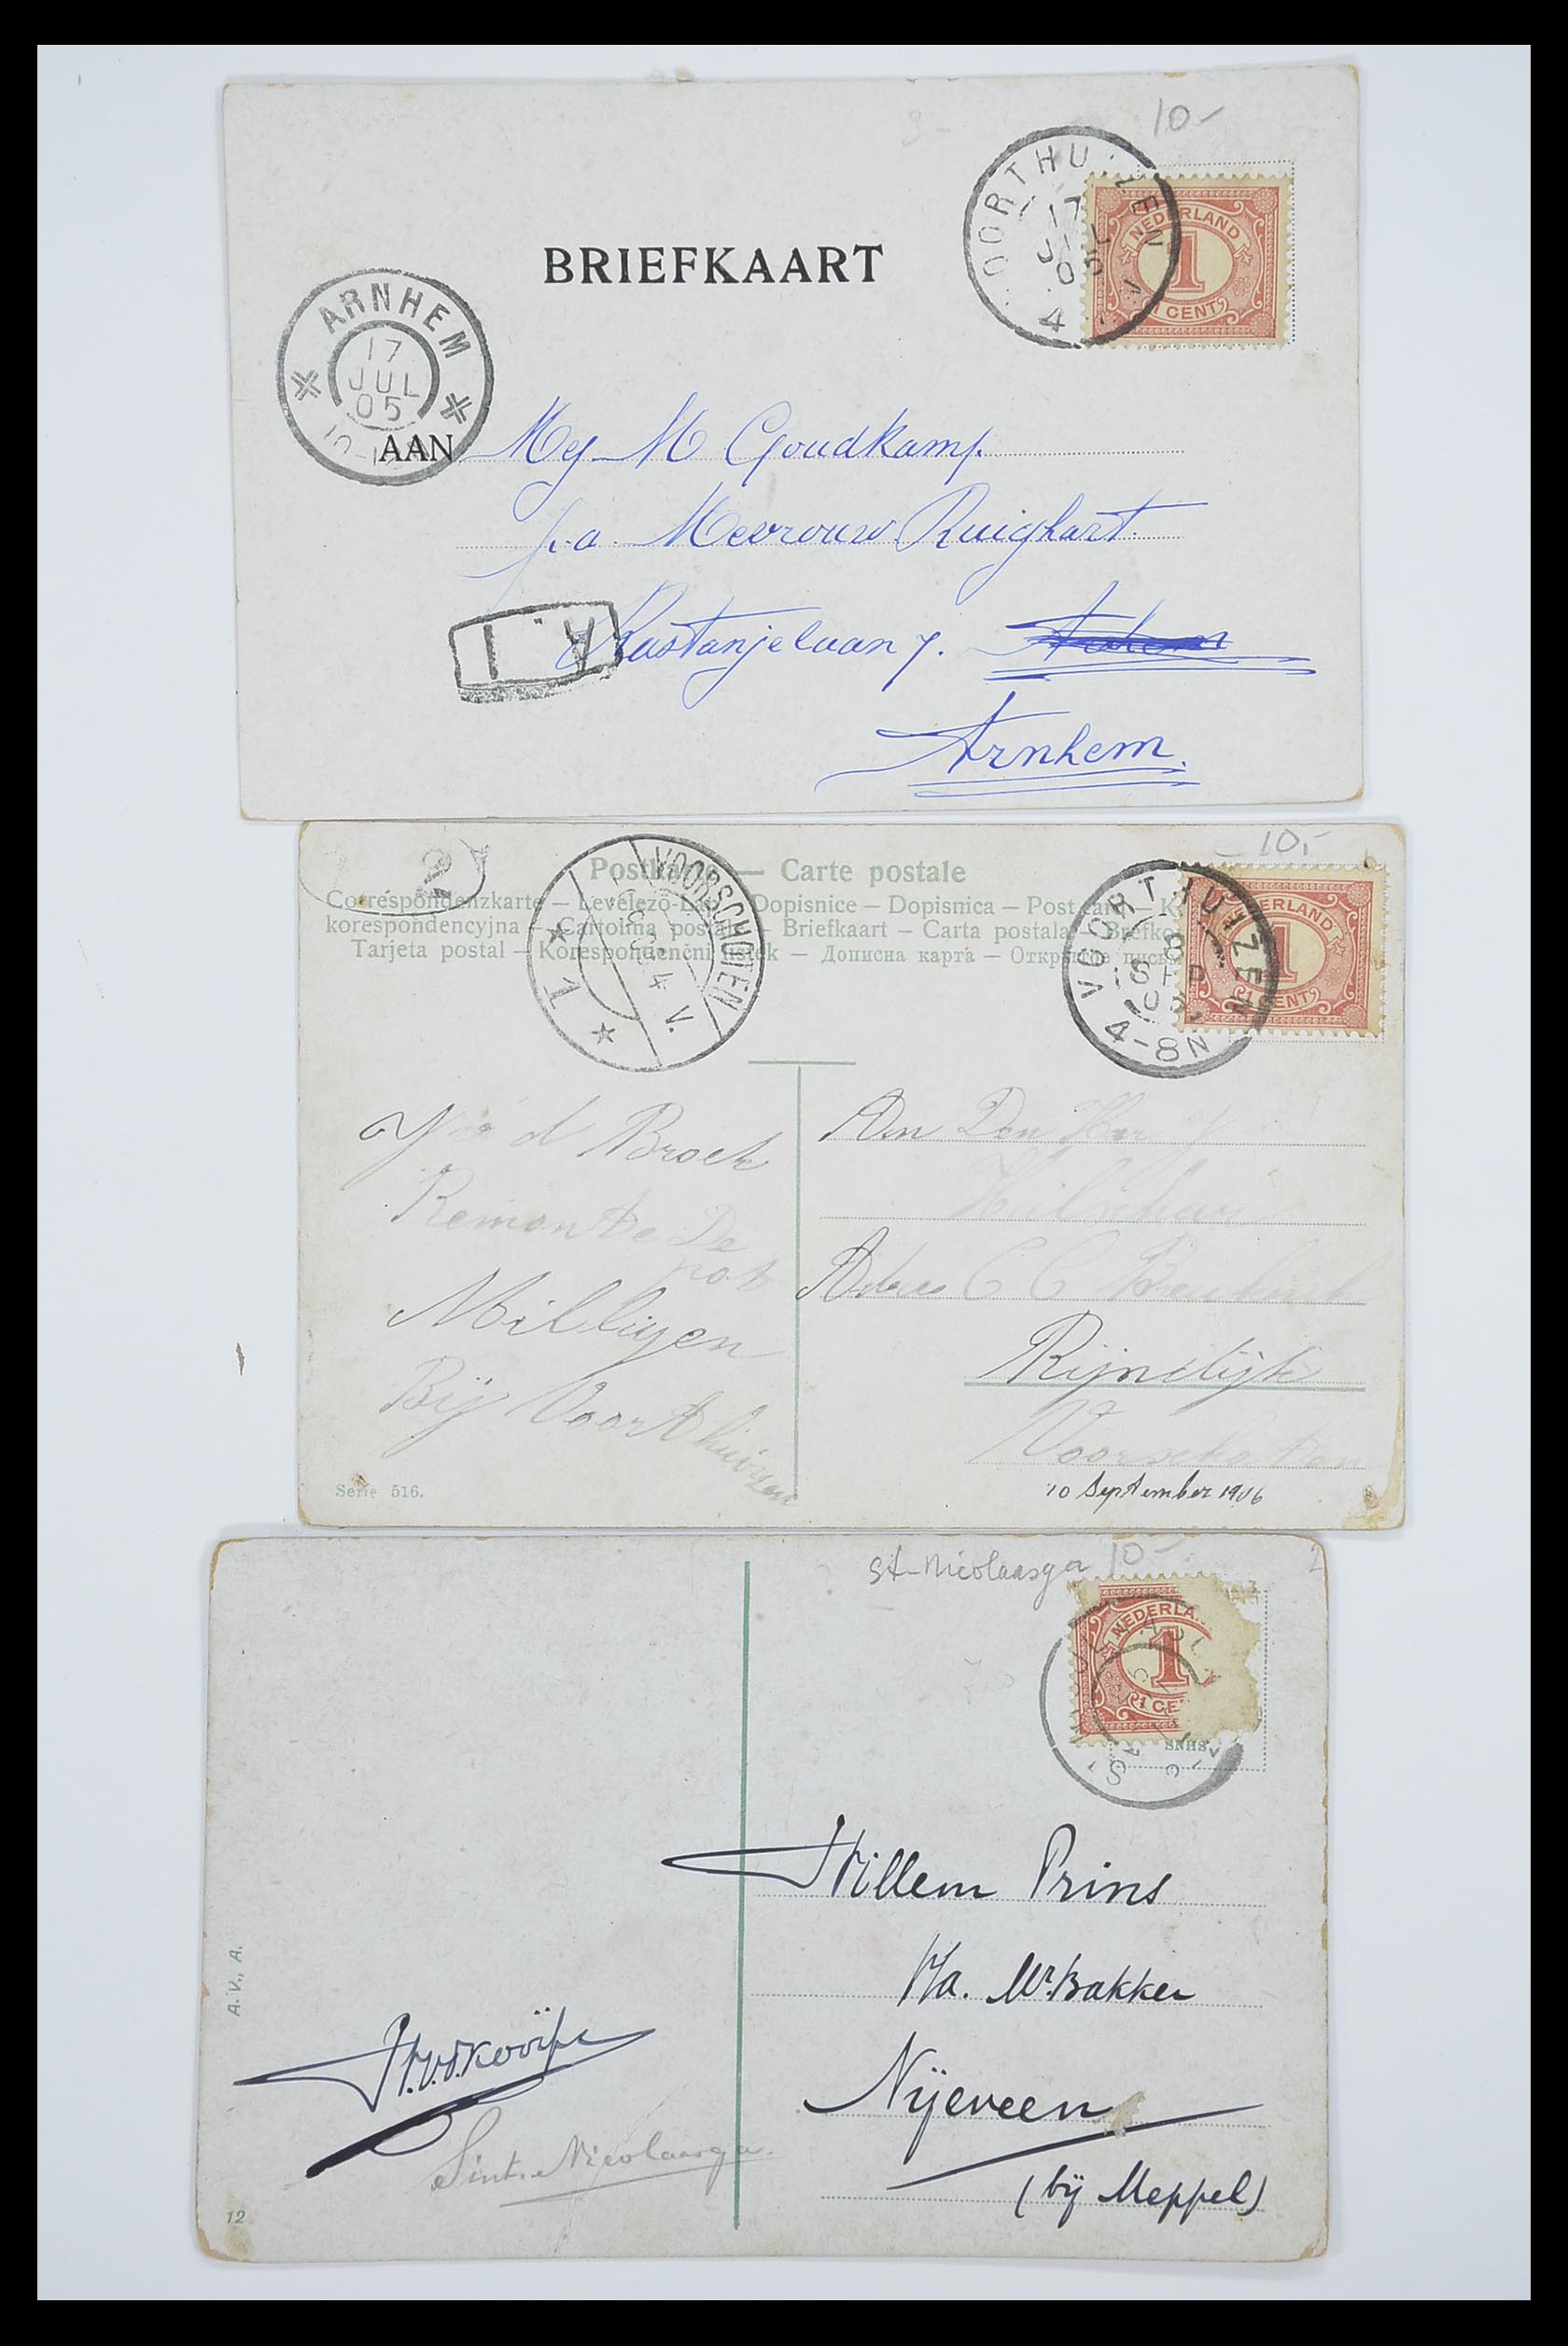 10-
VOORTHUIZEN
17
JUL
05
4
NEDERLAND
1
1 CENT
BRIEFKAART
ARNHEM
17
JUL
05
AAN Mej M Goudkamp.
p.a. Mevrouw Ruighart.
Kastanjelaan 7. Arnhem
Arnhem.
10.-
2
Postkarte — Carte postale
Correspondenzkarte — Levelező-Lap — Dopisnice — Dopisnica — Post card — K
korespondencyjna — Cartolina postale — Briefkaart — Carta postala — Brefko
Tarjeta postal — Korespondenční listek — Дописна карта — Открытое письм
VOORSCHOTEN
4 V.
1
VOORTHUIZEN
8
SEP
4-8N
NEDERLAND
1
1 CENT
v d Broek
Remonte De
pot
Milligen
Bij Voorthuizen
Aan Den Heer
Adres C C
Rijndijk
Voorschoten
10 September 1906
Serie 516.
St-Nicolaasga 10-
NEDERLA
1
1 CE
SNHS
Willem Prins
p/a. Mr. Bakker
Nijeveen
(bij Meppel)
A. V., A.
Sint. Nicolaasga.
12